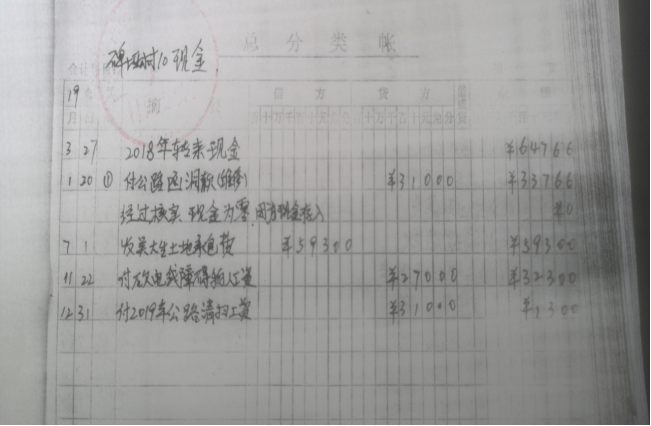 总分类帐
碑垭村10现金
19年
月 日 摘 借方 贷方
3 27 2018年转来现金 ¥64766
1 20 ① 付公路函洞款(维修) ¥31000 ¥33766
经过核实 现金为零 ¥0
7 1 收吴大生土地承包费 ¥59300 ¥59300
11 22 付 电线障碍 工资 ¥27000 ¥32300
12 31 付2019年公路清扫工资 ¥31000 ¥1300